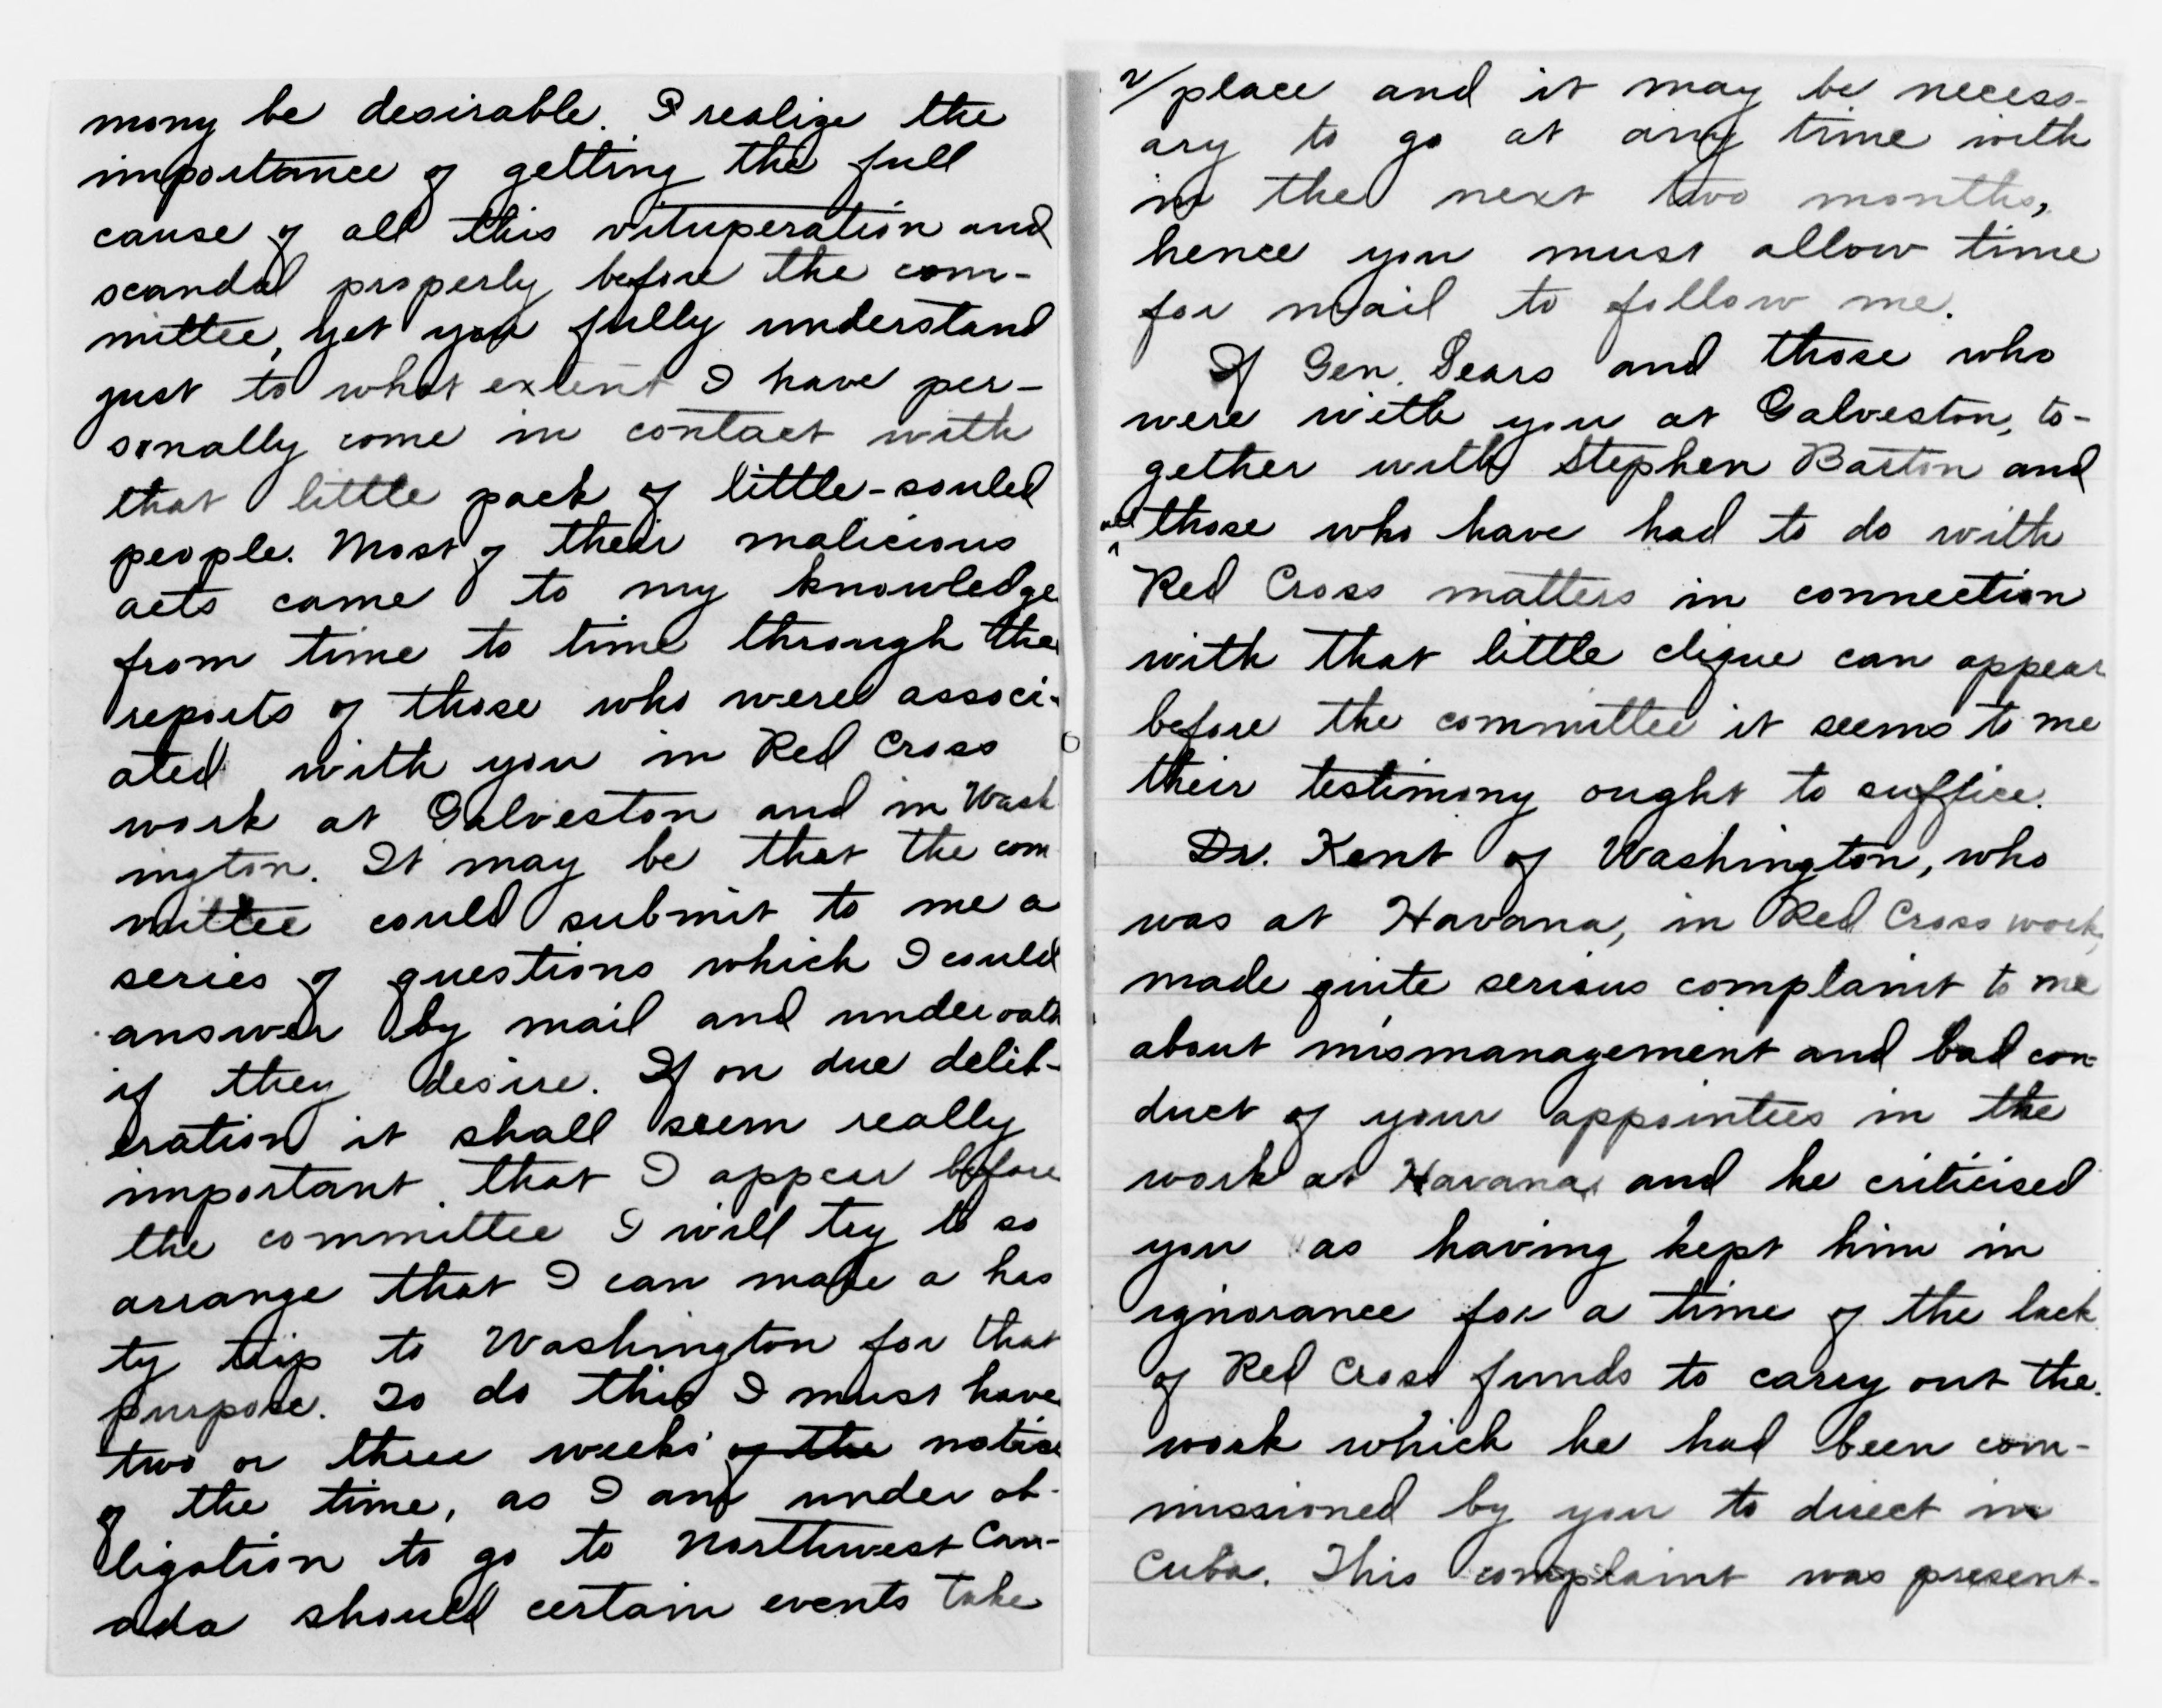 mony be desirable. I realize the
importance of getting the full
cause of all this vituperation and
scandal properly before the com-
mittee, yet you fully understand
just to what extent I have per-
sonally come in contact with
that little pack of little-souled
people. Most of their malicious
acts came to my knowledge
from time to time through the
reports of those who were associ-
ated with you in Red Cross
work at Galveston and in Wash
ington. It may be that the com
mittee could submit to me a
series of questions which I could
answer by mail and under oath
if they desire. If on due delib-
eration it shall seem really
important that I appear before
the committee I will try to so
arrange that I can make a has
ty trip to Washington for that
purpose. To do this I must have
two or three weeks' of the notice
of the time, as I am under ob-
ligation to go to Northwest Can-
ada should certain events take
2/ place and it may be necess-
ary to go at any time with
in the next two months,
hence you must allow time
for mail to follow me.
If Gen. Sears and those who
were with you at Galveston, to-
gether with Stephen Barton and
all those who have had to do with
Red Cross matters in connection
with that little clique can appear
before the committee it seems to me
their testimony ought to suffice.
Dr. Kent of Washington, who
was at Havana, in Red Cross work,
made quite serious complaint to me
about mismanagement and bad con-
duct of your appointees in the
work at Havana, and he criticised
you as having kept him in
ignorance for a time of the lack
of Red Cross funds to carry out the
work which he had been com-
missioned by you to direct in
Cuba. This complaint was present-